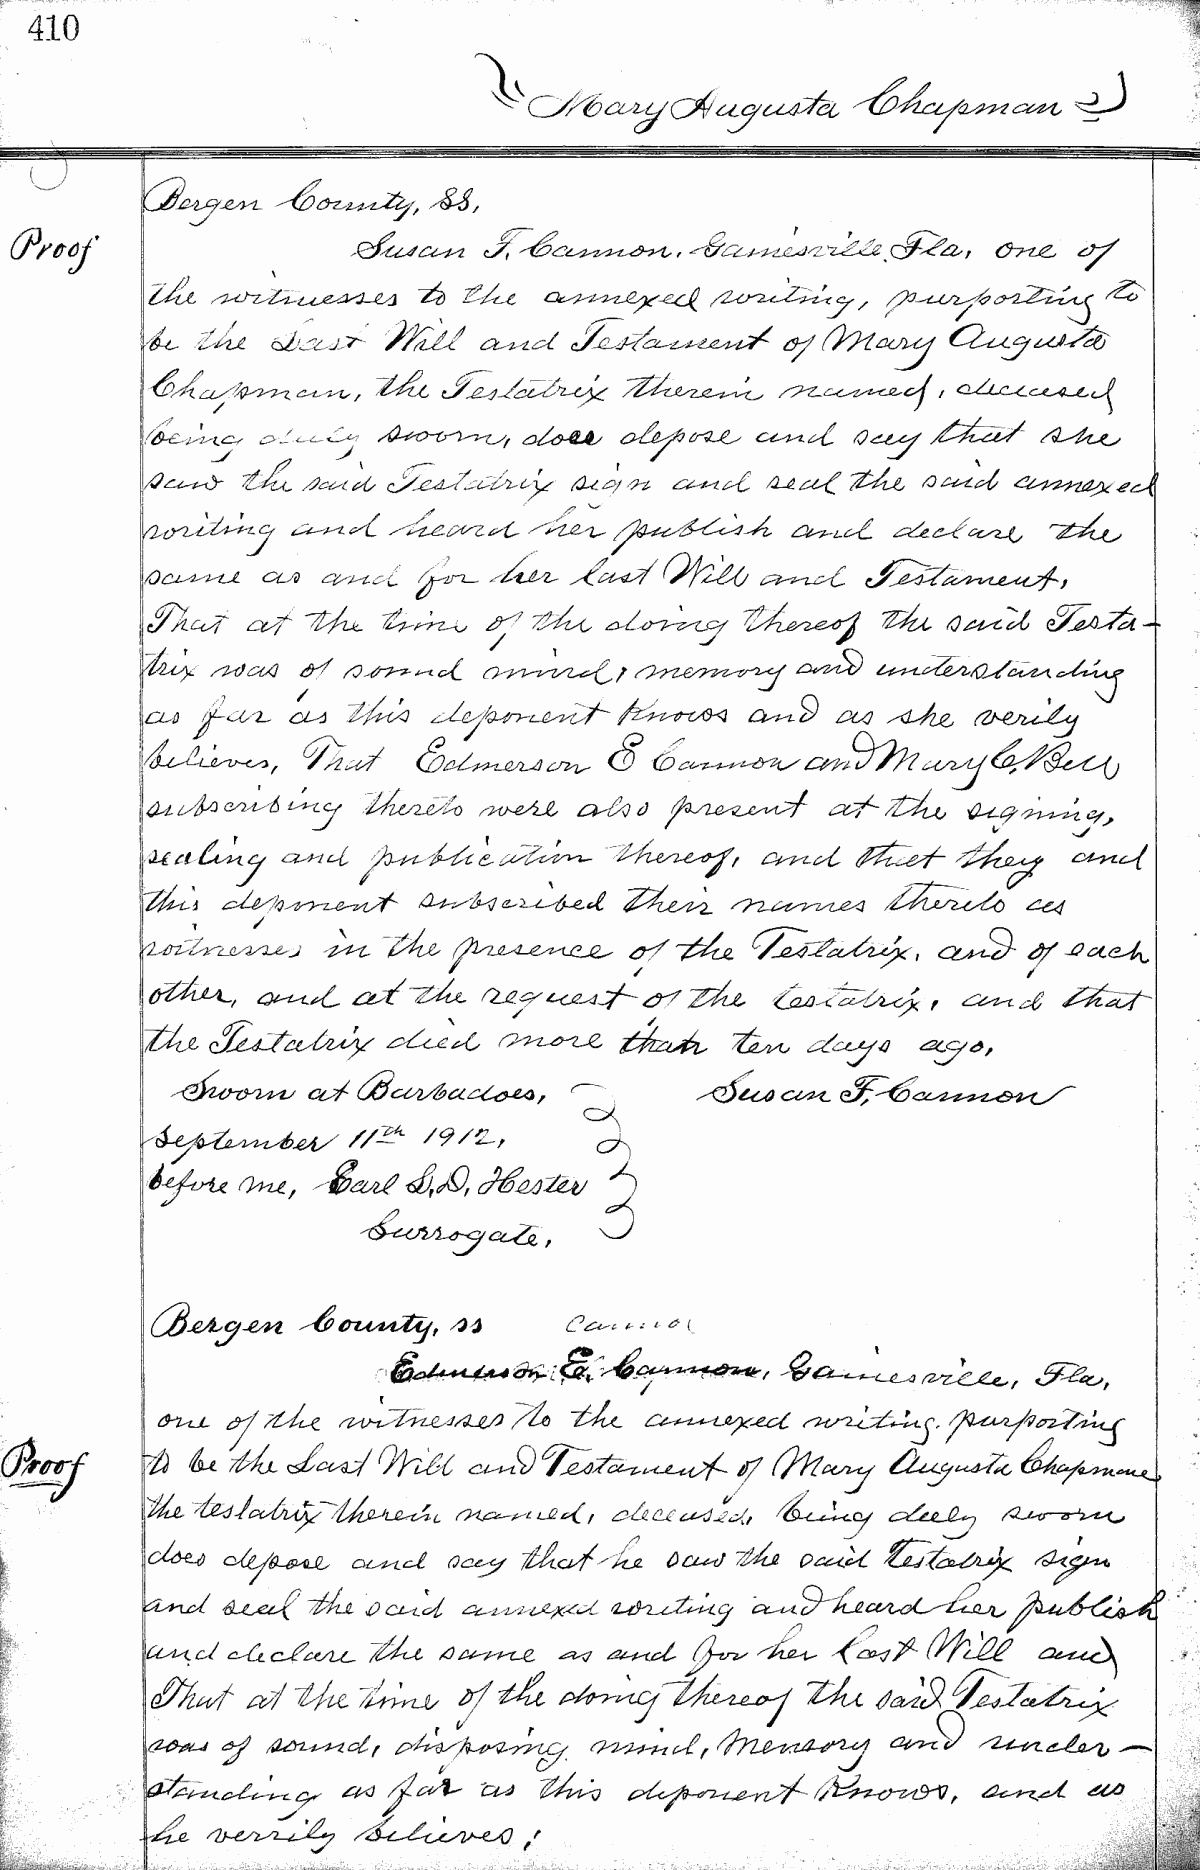 410
Mary Augusta Chapman
Bergen County, SS,
Proof
Susan F. Cannon. Gainesville, Fla, one of
the witnesses to the annexed writing, purporting to
be the Last Will and Testament of Mary Augusta
Chapman, the Testatrix therein named, deceased
being duly sworn, does depose and say that she
saw the said Testatrix sign and seal the said annexed
writing and heard her publish and declare the
same as and for her last Will and Testament,
That at the time of the doing thereof the said Testa-
trix was of sound mind, memory and understanding
as far as this deponent knows and as she verily
believes, That Edmerson E Cannon and Mary C. Bell
subscribing thereto were also present at the signing,
sealing and publication thereof, and that they and
this deponent subscribed their names thereto as
witnesses in the presence of the Testatrix, and of each
other, and at the request of the testatrix, and that
the Testatrix died more than ten days ago.
Sworn at Barbadoes, Susan F. Cannon
September 11th 1912,
before me, Earl L. D. Hester
Surrogate,
Bergen County, ss Cannon
Edmerson E. Cannon, Gainesville, Fla,
one of the witnesses to the annexed writing purporting
Proof
to be the Last Will and Testament of Mary Augusta Chapman
the testatrix therein named, deceased, being duly sworn
does depose and say that he saw the said Testatrix sign
and seal the said annexed writing and heard her publish
and declare the same as and for her last Will and
That at the time of the doing thereof the said Testatrix
was of sound, disposing mind, memory and under-
standing as far as this deponent knows, and as
he verrily believes;